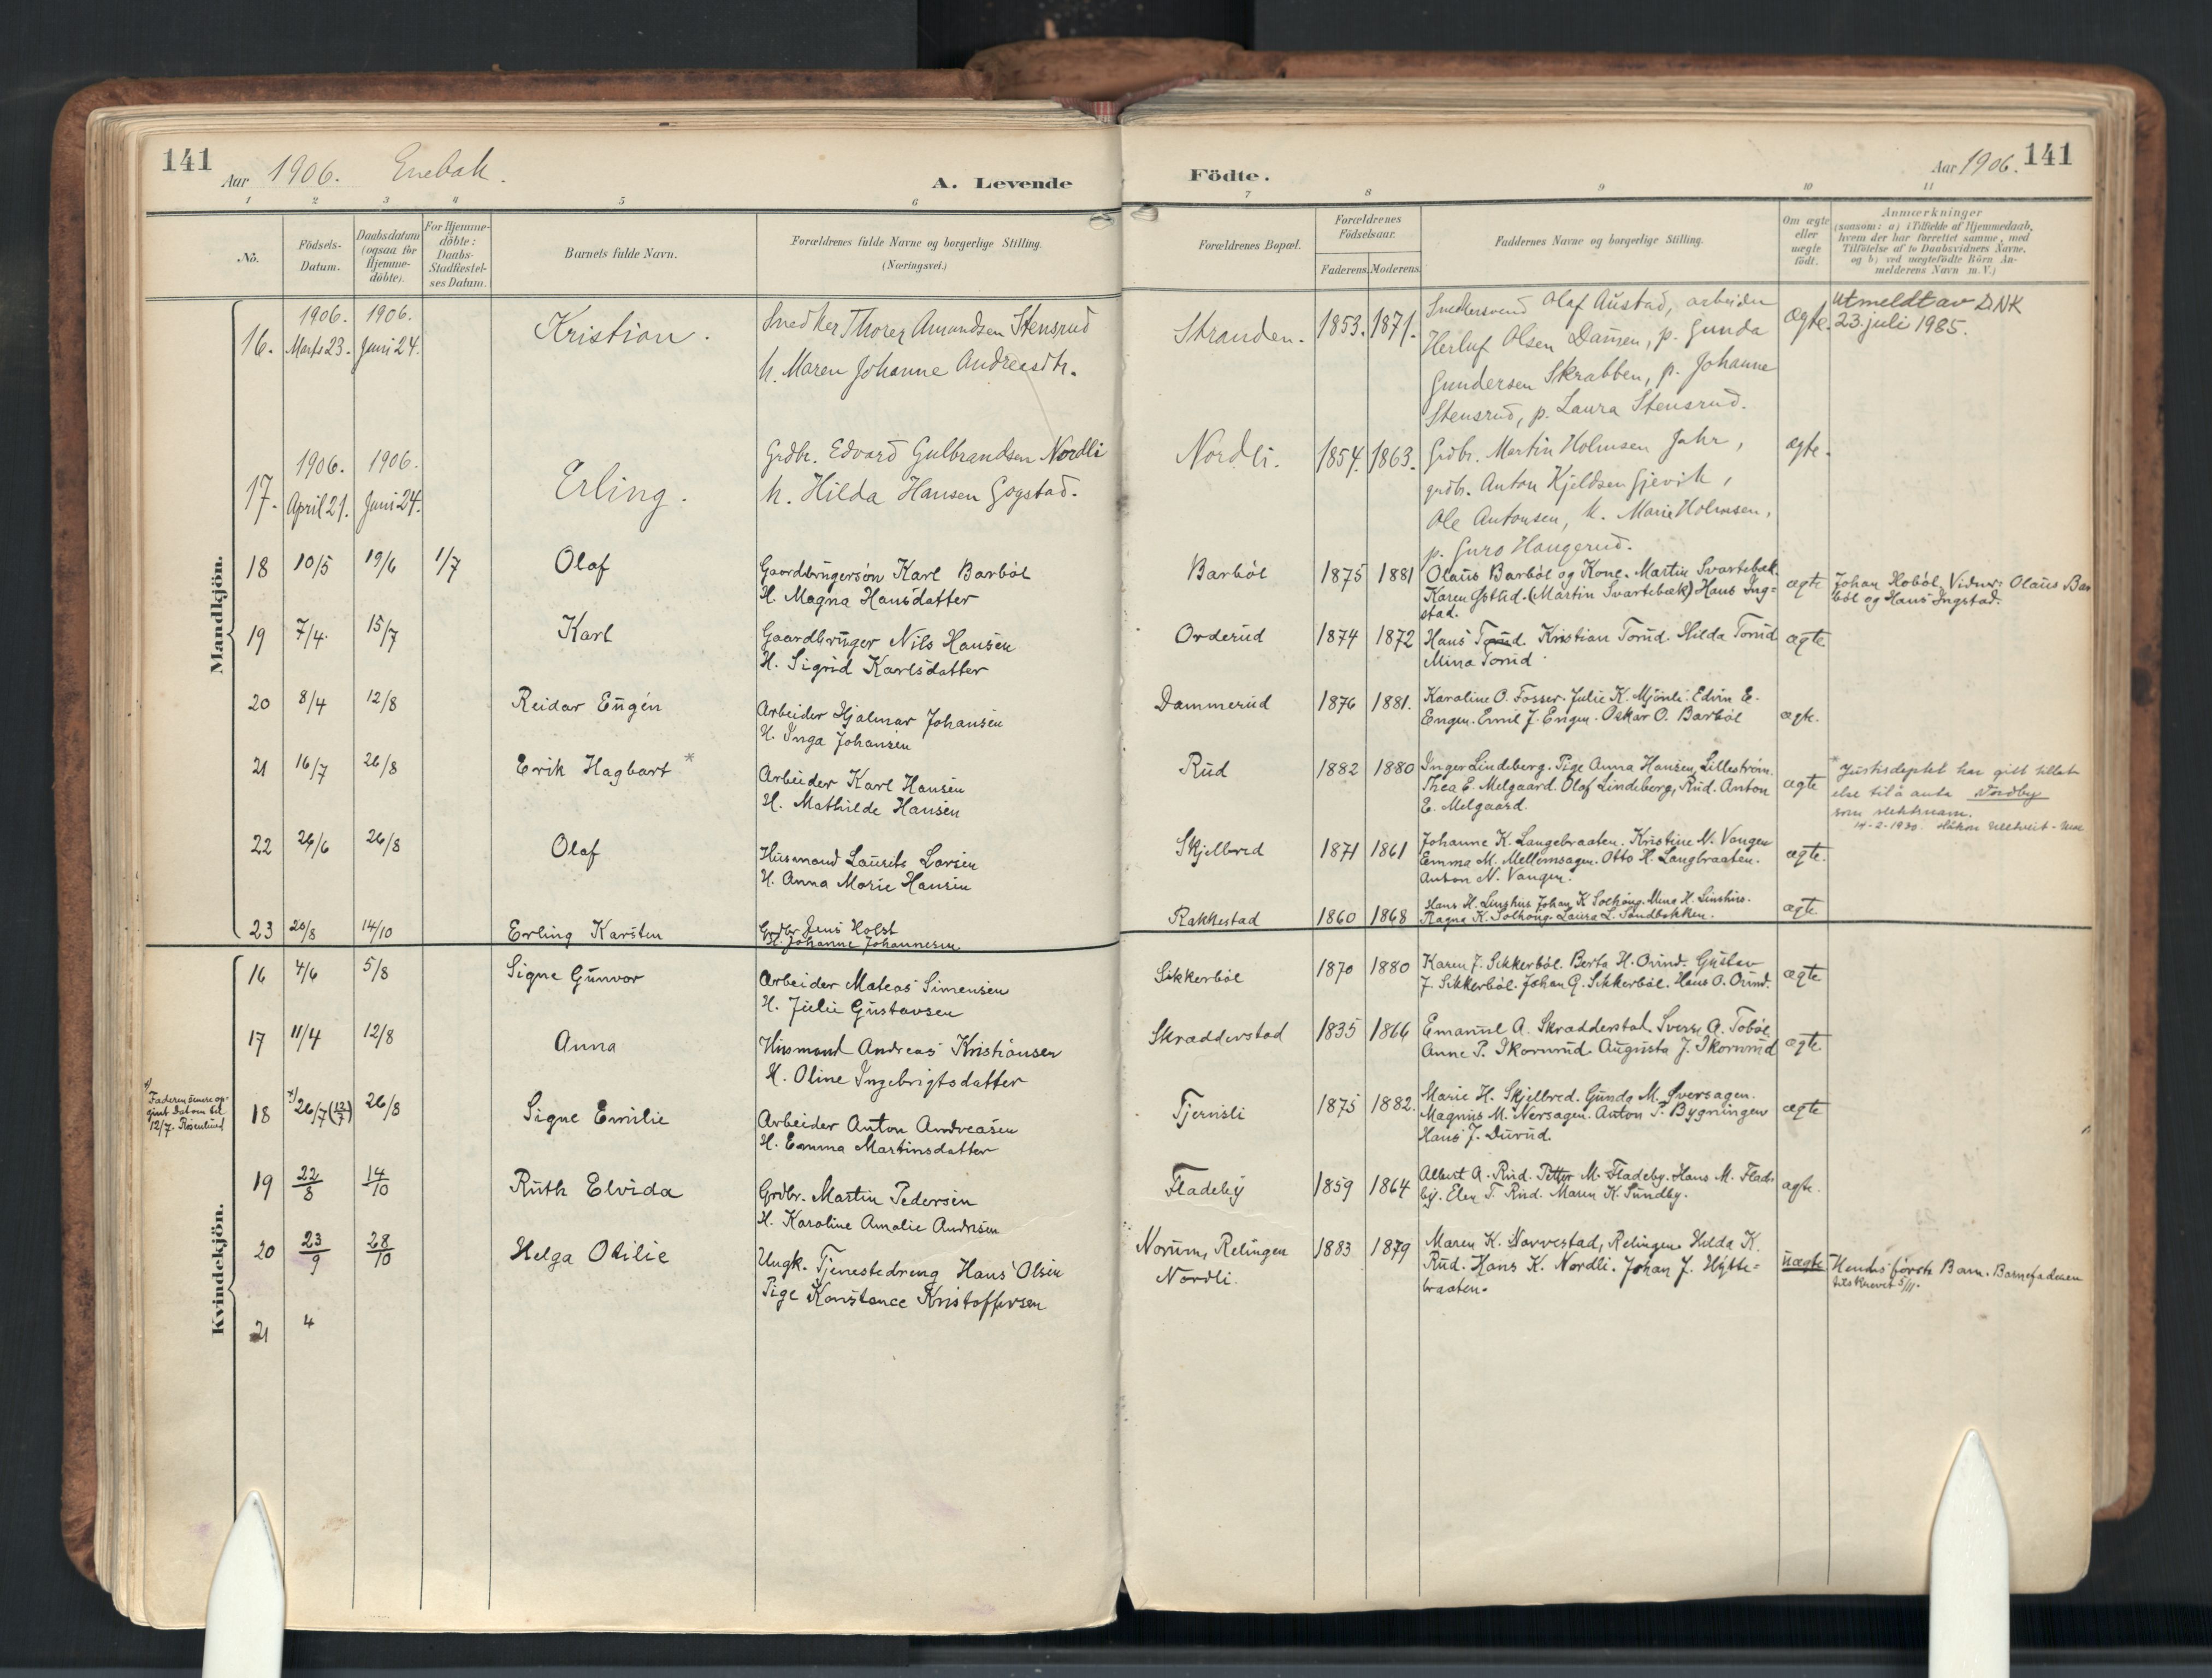 141
Aar 1906. Enebak.
A. Levende
1 2 3 4 5 6
No.
Födsels-
Datum.
Daabsdatum
(ogsaa for
Hjemme-
döbte).
For Hjemme-
döbte:
Daabs-
Stadfæstel-
ses Datum.
Barnets fulde Navn.
Forældrenes fulde Navne og borgerlige Stilling.
(Næringsvei.)
Mandkjön.
16.
1906.
Marts 23.
1906.
Juni 24.
Kristian.
Snedker Thorer Amundsen Stensrud
h. Maren Johanne Andreasdtr.
17.
1906.
April 21.
1906.
Juni 24.
Erling.
Grdbr. Edvard Gulbrandsen Nordli
h. Hilda Hansen Gogstad.
18 10/5 19/6 1/7 Olaf
Gaardbrugersøn Karl Barböl
H. Magna Hansdatter
19 7/4 15/7 Karl
Gaardbruger Nils Hansen
H. Sigrid Karlsdatter
20 8/4 12/8 Reidar Eugén
Arbeider Hjalmar Johansen
H. Inga Johansen
21 16/7 26/8 Erik Hagbart *
Arbeider Karl Hansen
H. Mathilde Hansen
22 26/6 26/8 Olaf
Husmand Laurits Larsen
H. Anna Marie Hansen
23 20/8 14/10 Erling Karsten
Grdbr Jens Holst
H. Johanne Johannesen.
Kvindekjön.
16 4/6 5/8 Signe Gunvor
Arbeider Mateas Simensen
H. Julie Gustavsen
17 11/4 12/8 Anna
Husmand Andreas Kristiansen
H. Oline Ingebrigtsdatter
Faderen senere op-
givet Datoen til
12/7. Rosenlund
18 *) 26/7 (12/7) 26/8 Signe Emilie
Arbeider Anton Andreasen
H. Emma Martinsdatter
19 22/8 14/10 Ruth Elvida
Grdbr. Martin Pedersen
H. Karoline Amalie Andresen
20 23/9 28/10 Helga Otilie
Ungk. Tjenestedreng Hans Olsen
Pige Konstance Kristoffersen
21 4
Födte.
Aar 1906. 141
7 8 9 10 11
Forældrenes Bopæl.
Forældrenes
Födselsaar.
Faderens. Moderens.
Faddernes Navne og borgerlige Stilling.
Om ægte
eller
uægte
födt.
Anmærkninger
(saasom: a) i Tilfælde af Hjemmedaab,
hvem der har forrettet samme, med
Tilföielse af to Daabsvidners Navne,
og b) ved uægtefödte Börn An-
melderens Navn m. V.)
Stranden. 1853. 1871.
Snedkersvend Olaf Austad, arbeider
Herluf Olsen Damen, p. Gunda
Gundersen Skrabben, p. Johanne
Stensrud, p. Laura Stensrud.
ægte.
Utmeldt av DNK
23. juli 1985.
Nordli. 1854. 1863.
Grdbr. Martin Holmsen Jahr,
grdbr. Anton Kjeldsen Gjevik,
Ole Antonsen, h. Marie Holmsen,
p. Guro Haugerud.
ægte.
Barböl 1875 1881
Olaus Barböl og Kone. Martin Svartebæk.
Karen Östlid. (Martin Svartebæk) Hans Ing-
stad.
ægte
Johan Hoböl. Vidner: Olaus Bar
böl og Hans Ingstad.
Orderud 1874 1872
Hans Torud. Kristian Torud. Hilda Torud
Mina Torud
ægte
Dammerud 1876 1881.
Karoline O. Fosser. Julie K. Mjönli. Edvin E.
Engen. Emil J. Engen. Oskar O. Barböl
ægte.
Rud 1882 1880
Inger Lindeberg. Pige Anna Hansen, Lilleström.
Thea E. Melgaard. Olaf Lindeberg, Rud. Anton
E. Melgaard.
ægte
* Justisdeptet har gitt tillat-
else til å anta Nordby
som slektsnavn.
14-2-1930
Skjelbred 1871 1861
Johanne K. Langebraaten. Kristine N. Vangen
Emma M. Mellemsagen. Otto H. Langbraaten.
Anton N. Vangen.
ægte.
Rakkestad 1860 1868
Hans H. Linshus Johan K Solhong. Mina H. Linshus.
Ragna K. Solhong. Laura L. Sandbakken.
ægte
Sikkerböl 1870 1880
Karen J. Sikkerböl. Berta H. Ourud. Gustav
J. Sikkerböl. Johan G. Sikkerböl. Hans O. Ourud.
ægte
Skradderstad 1835 1866
Emanuel A. Skradderstad. Sverre A. Toböl
Anne P. Ikornrud. Augusta J. Ikornrud
ægte
Tjernsli 1875 1882.
Marie H. Skjelbred. Gunda M. Iversagen.
Magnus M. Nersagen. Anton P. Bygningen
Hans J. Durud.
ægte
Fladeby 1859 1864
Albert A. Rud. Petter M. Fladeby. Hans M. Flade-
by. Elen T. Rud. Maren K. Sundby.
ægte.
Norum, Relingen
Nordli.
1883 1879
Maren K. Norrestad, Relingen. Hilda K.
Rud. Hans K. Nordli. Johan J. Hytte-
braaten.
uægte
Hendes förste Barn. Barnefaderen
tilskrevet 5/11.